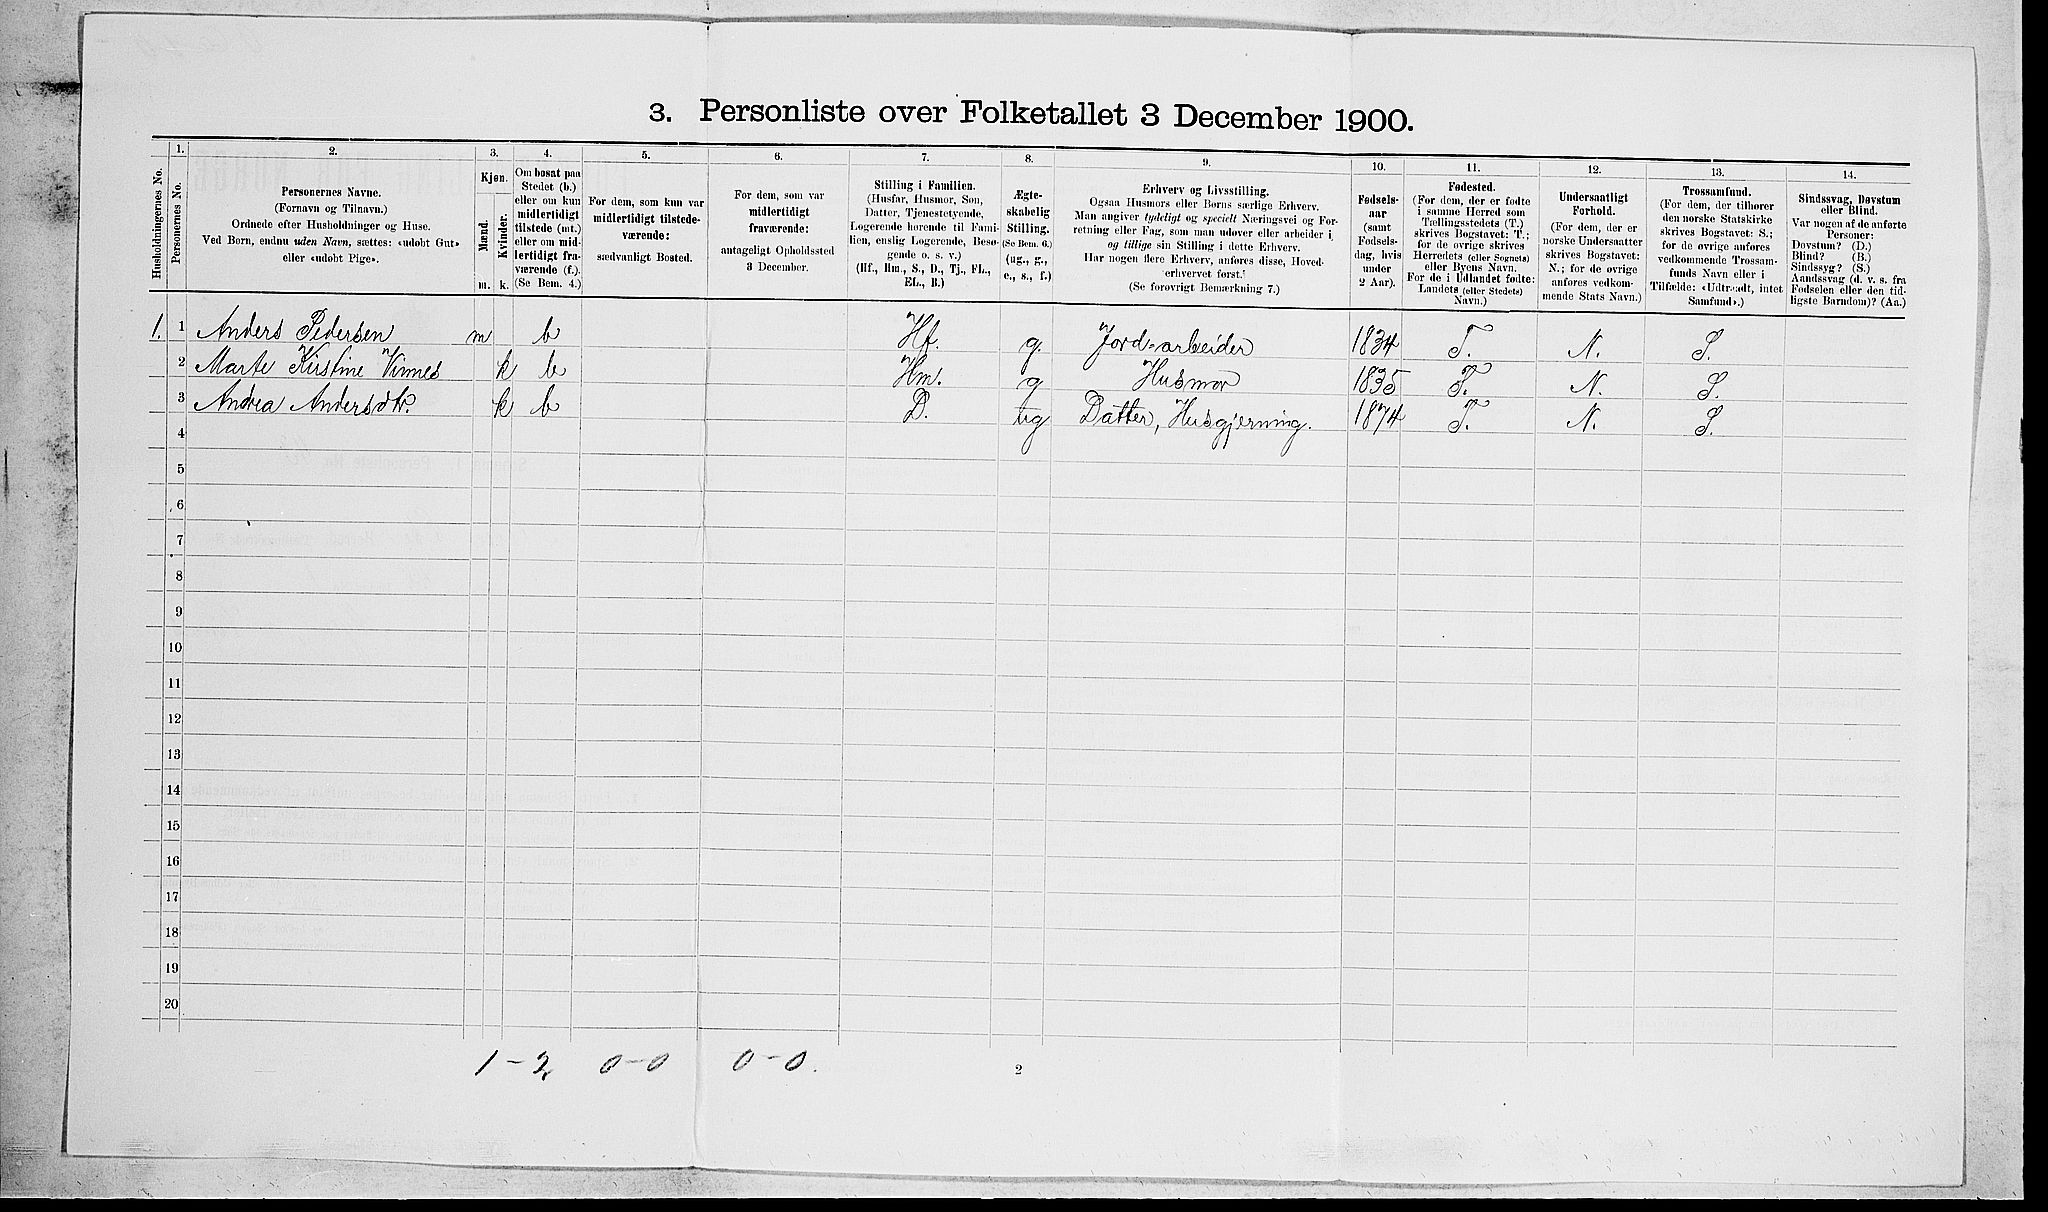 3. Personliste over Folketallet 3 December 1900.
1. 2. 3. 4. 5. 6. 7. 8. 9. 10. 11. 12. 13. 14.
Husholdningernes No.
Personernes No.
Personernes Navne.
(Fornavn og Tilnavn.)
Ordnede efter Husholdninger og Huse.
Ved Børn, endnu uden Navn, sættes: «udøbt Gut»
eller «udøbt Pige».
Kjøn.
Mænd.
Kvinder.
m. k.
Om bosat paa
Stedet (b.)
eller om kun
midlertidigt
tilstede (mt.)
eller om mid-
lertidigt fra-
værende (f.).
(Se Bem. 4.)
For dem, som kun var
midlertidigt tilstede-
værende:
sædvanligt Bosted.
For dem, som var
midlertidigt
fraværende:
antageligt Opholdssted
3 December.
Stilling i Familien.
(Husfar, Husmor, Søn,
Datter, Tjenestetyende,
Logerende hørende til Fami-
lien, enslig Logerende, Besø-
gende o. s. v.)
(Hf., Hm., S., D., Tj., FL.,
EL., B.)
Ægte-
skabelig
Stilling.
(Se Bem. 6.)
(ug., g.,
e., s., f.)
Erhverv og Livsstilling.
Ogsaa Husmors eller Børns særlige Erhverv.
Man angiver tydeligt og specielt Næringsvei og For-
retning eller Fag, som man udøver eller arbeider i,
og tillige sin Stilling i dette Erhverv.
Har nogen flere Erhverv, anføres disse, Hoved-
erhvervet først.
(Se forøvrigt Bemærkning 7.)
Fødsels-
aar
(samt
Fødsels-
dag, hvis
under
2 Aar).
Fødested.
(For dem, der er fødte
i samme Herred som
Tællingsstedets (T.)
skrives Bogstavet: T.;
for de øvrige skrives
Herredets (eller Sognets)
eller Byens Navn.
For de i Udlandet fødte:
Landets (eller Stedets)
Navn.)
Undersaatligt
Forhold.
(For dem, der er
norske Undersaatter
skrives Bogstavet:
N.; for de øvrige
anføres vedkom-
mende Stats Navn.)
Trossamfund.
(For dem, der tilhører
den norske Statskirke
skrives Bogstavet: S.;
for de øvrige anføres
vedkommende Trossam-
funds Navn eller i
Tilfælde: «Udtraadt, intet
Samfund».)
Sindssvag, Døvstum
eller Blind.
Var nogen af de anførte
Personer:
Døvstum? (D.)
Blind? (B.)
Sindssyg? (S.)
Aandssvag (d. v. s. fra
Fødselen eller den tid-
ligste Barndom)? (Aa.)
1. 1 Anders Pedersen m b Hf. g. Jord-arbeider 1834 T. N. S.
2 Marte Kirstine Vinnes k b Hm. g Husmor 1835 T. N. S.
3 Andrea Andersdtr. k b D. ug Datter, Husgjerning. 1874 T. N. S.
4
5
6
7
8
9
10
11
12
13
14
15
16
17
18
19
20
1 - 2 0-0 0-0.
2